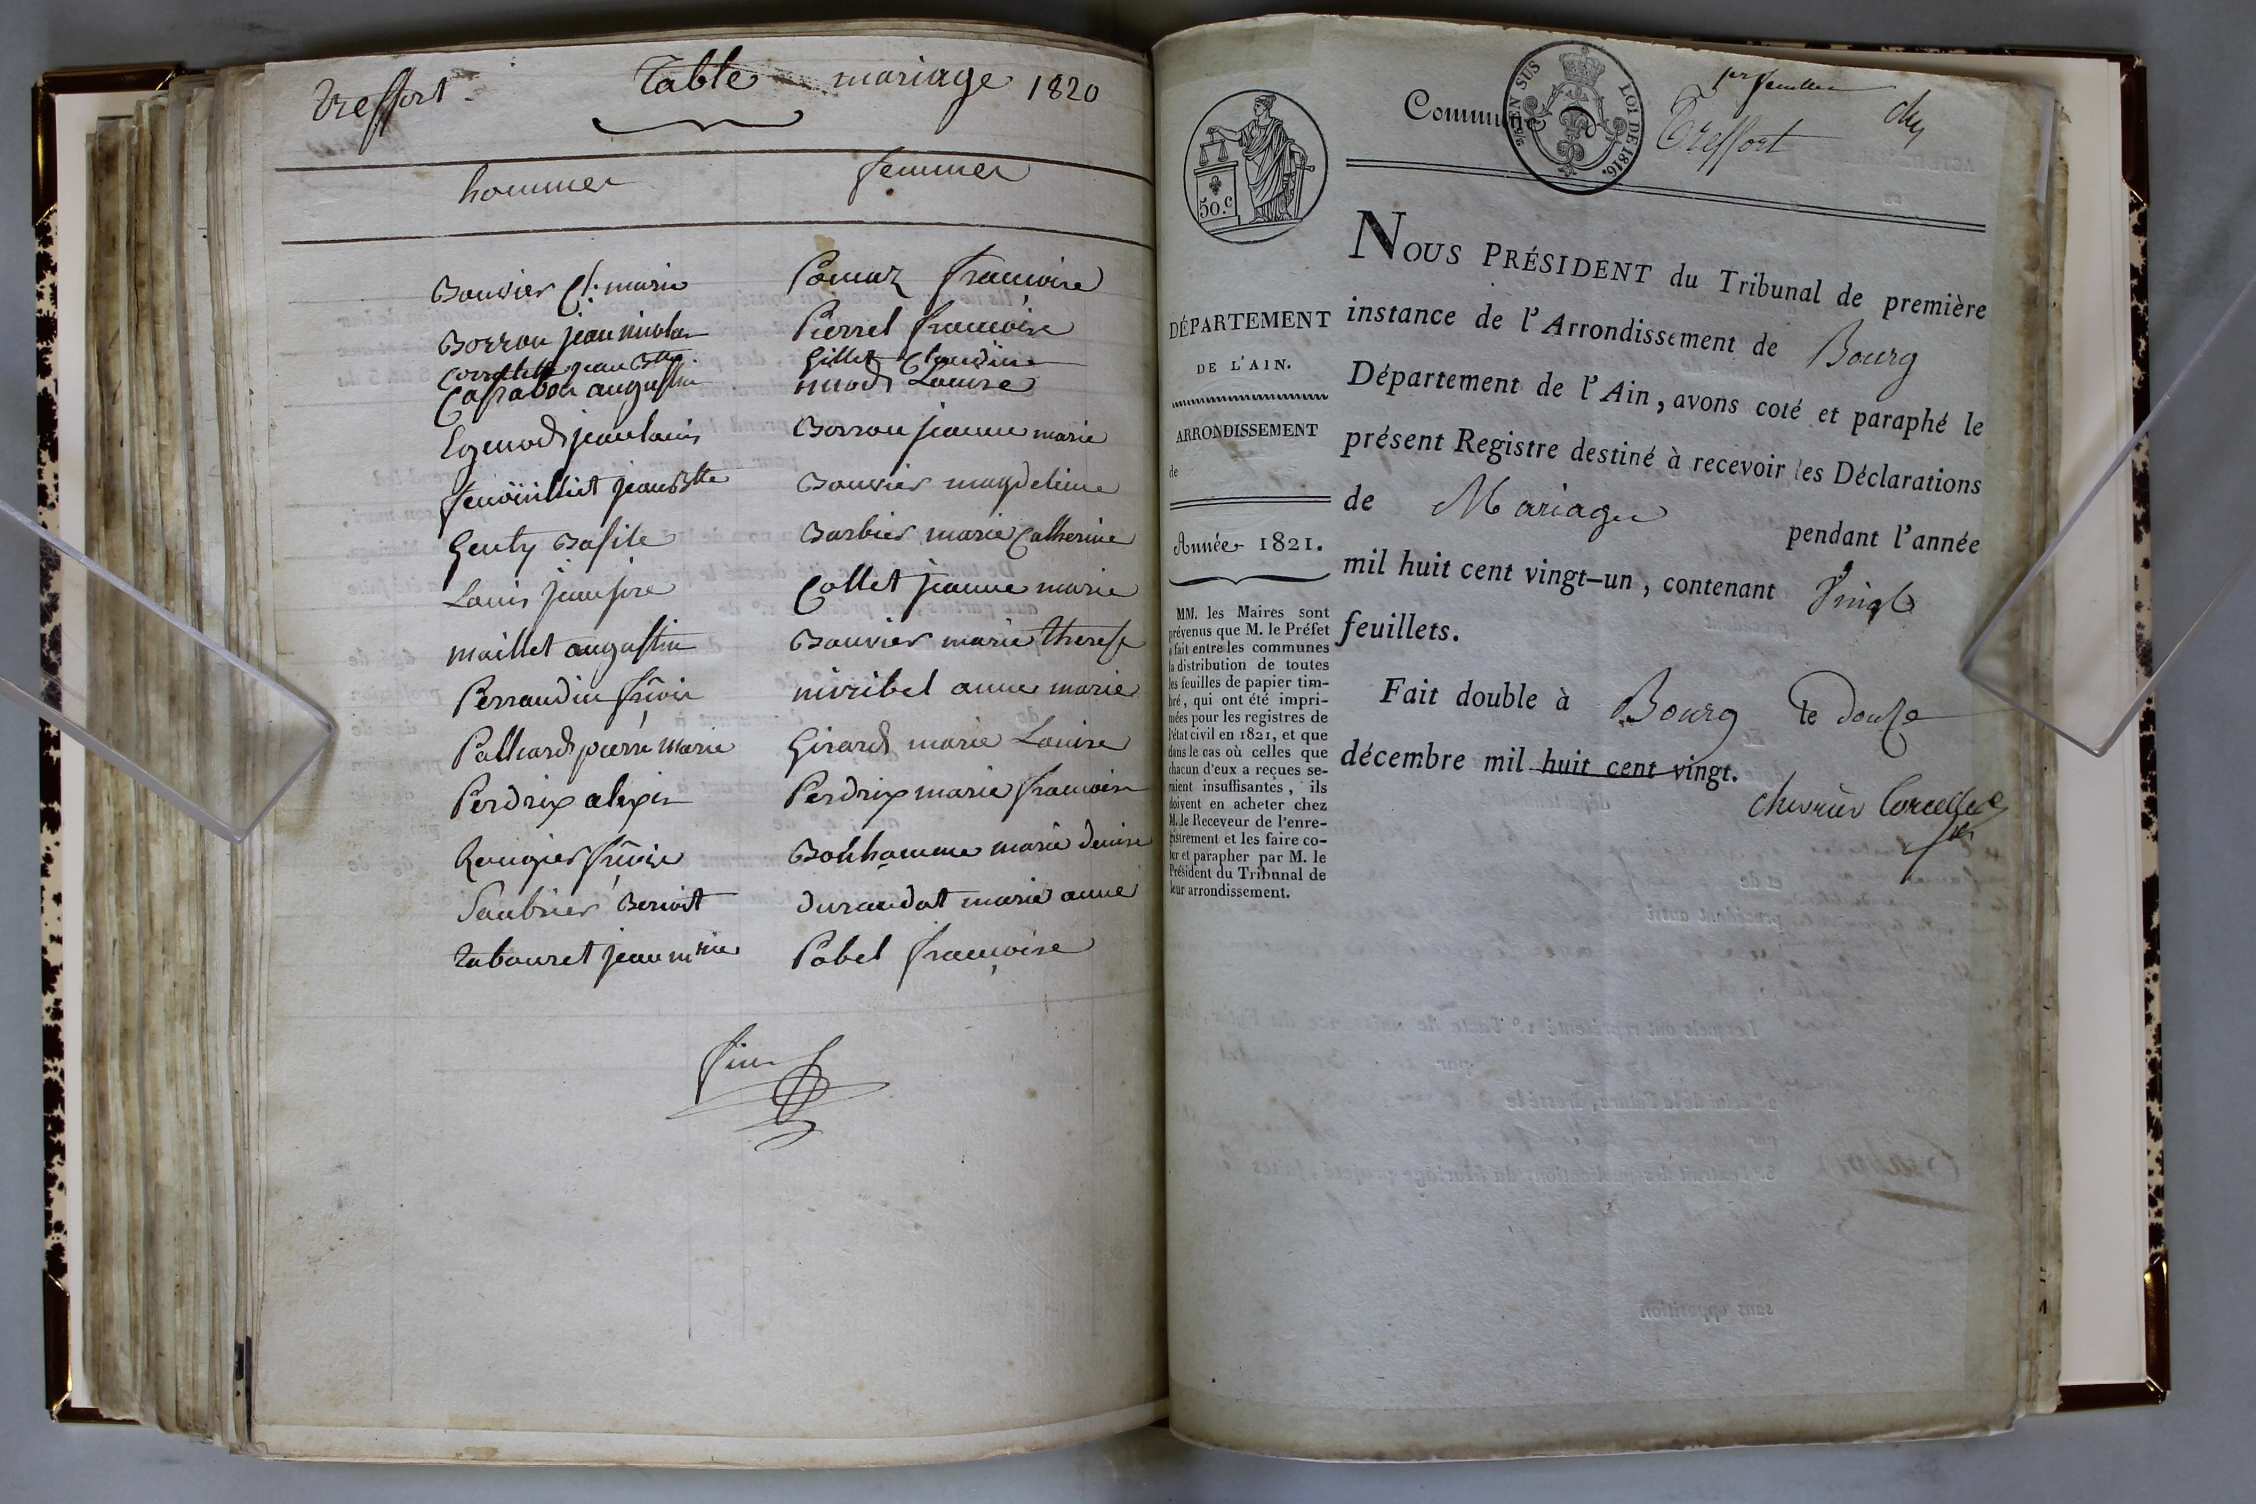 Treffort
Table mariage 1820
hommes femmes
Bouvier Cl. marie Pomaz francoise
Borron jean nicolas Pierrel francoise
jean Bte Gillet Claudine
Cassabois augustin nuod Louise
Egenod jean louis Borron jeanne marie
fenouillet jean Bte Bouvier magdeleine
Genty Basile Barbier marie Catherine
Louis jean jose Collet jeanne marie
maillet augustin Bouvier marie therese
Perraudin fcois miribel anne marie
Palliard pierre marie Girard marie Louise
Perdrix alexis Perdrix marie francoise
Rougier fcois Bonhomme marie denise
Saubrier Benoit durandot marie anne
Tabouret jean mrie Pobel françoise
fin
1er feuillet
Commune Treffort
EN SUS LOI DE 1816.
50.c
NOUS PRÉSIDENT du Tribunal de première
instance de l'Arrondissement de Bourg
Département de l'Ain, avons coté et paraphé le
présent Registre destiné à recevoir les Déclarations
de Mariages pendant l'année
mil huit cent vingt-un, contenant Vingt
feuillets.
Fait double à Bourg le douze
décembre mil huit cent vingt.
chevrier Corcelles
DÉPARTEMENT
DE L'AIN.
ARRONDISSEMENT
de
Année 1821.
MM. les Maires sont
prévenus que M. le Préfet
a fait entre les communes
la distribution de toutes
les feuilles de papier tim-
bré, qui ont été impri-
mées pour les registres de
l'état civil en 1821, et que
dans le cas où celles que
chacun d'eux a reçues se-
raient insuffisantes, ils
doivent en acheter chez
M. le Receveur de l'enre-
gistrement et les faire co-
ter et parapher par M. le
Président du Tribunal de
leur arrondissement.